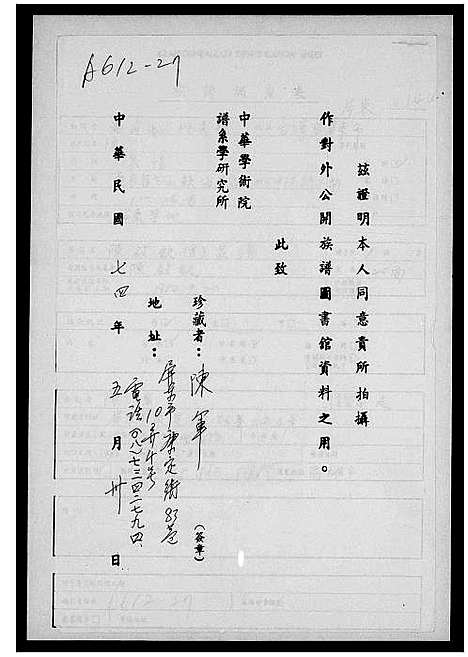 A612-27
茲證明本人同意貴所拍攝
作對外公開族譜圖書館資料之用。
此致
中華學術院
譜系學研究所
珍藏者：陳軍（簽章）
地址：屏東市康定街83巷
10弄4号
電話(〇八)七三四二七九四
中華民國七四年五月卅日